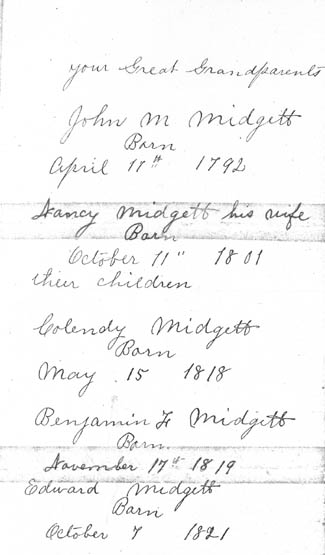 your Great Grandparents
John M Midgett
Born
April 11th 1792
Nancy Midgett his wife
Born
October 11" 1801
their children
Colendy Midgett
Born
May 15 1818
Benjamin F Midgett
Born.
November 17th 1819
Edward Midgett
Born
October 7 1821